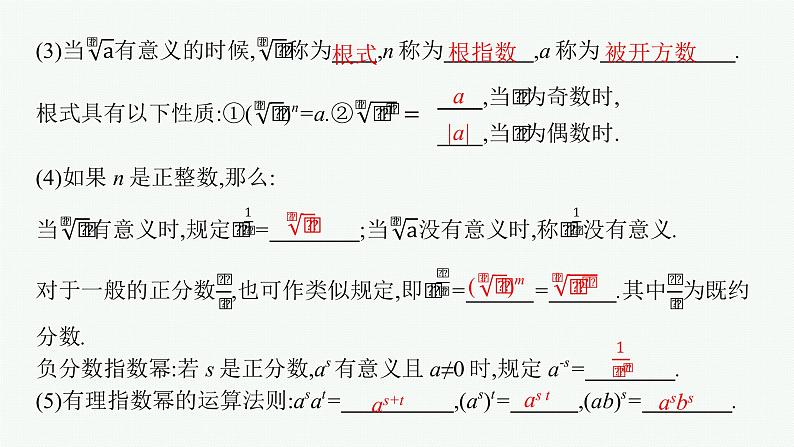 (3)当√a有意义的时候,√称为根式,n 称为 根指数 ,a 称为 被开方数 .
根式具有以下性质:①(√)ⁿ=a.②√ = a ,当 为奇数时,
|a| ,当 为偶数时.
(4)如果 n 是正整数,那么:
当√ 有意义时,规定 = √ ;当√a没有意义时,称 没有意义.
对于一般的正分数 ,也可作类似规定,即 = (√)ᵐ = √ .其中 为既约
分数.
负分数指数幂:若 s 是正分数,aˢ 有意义且 a≠0 时,规定 a⁻ˢ= 1/ .
(5)有理指数幂的运算法则:aˢaᵗ= aˢ⁺ᵗ ,(aˢ)ᵗ= aˢ ᵗ ,(ab)ˢ= aˢbˢ .